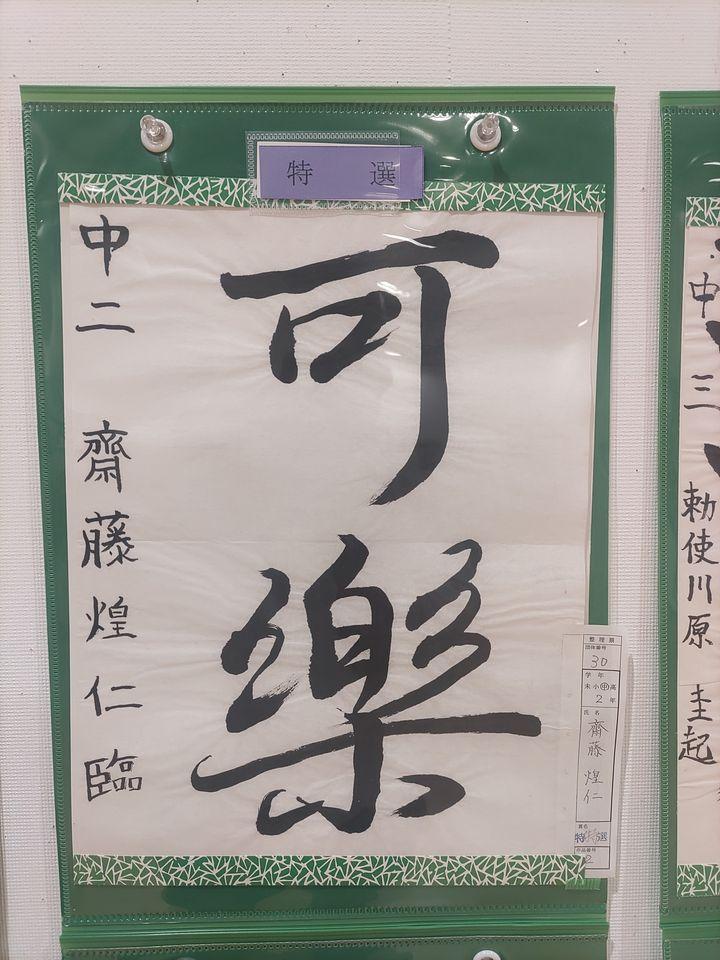 特 選
可樂
中二 齋藤煌仁臨
整理票
団体番号
30
学年
未小中高
2年
氏名
齋藤煌仁
賞名
特選
作品番号
2
中三 勅使川原 圭起